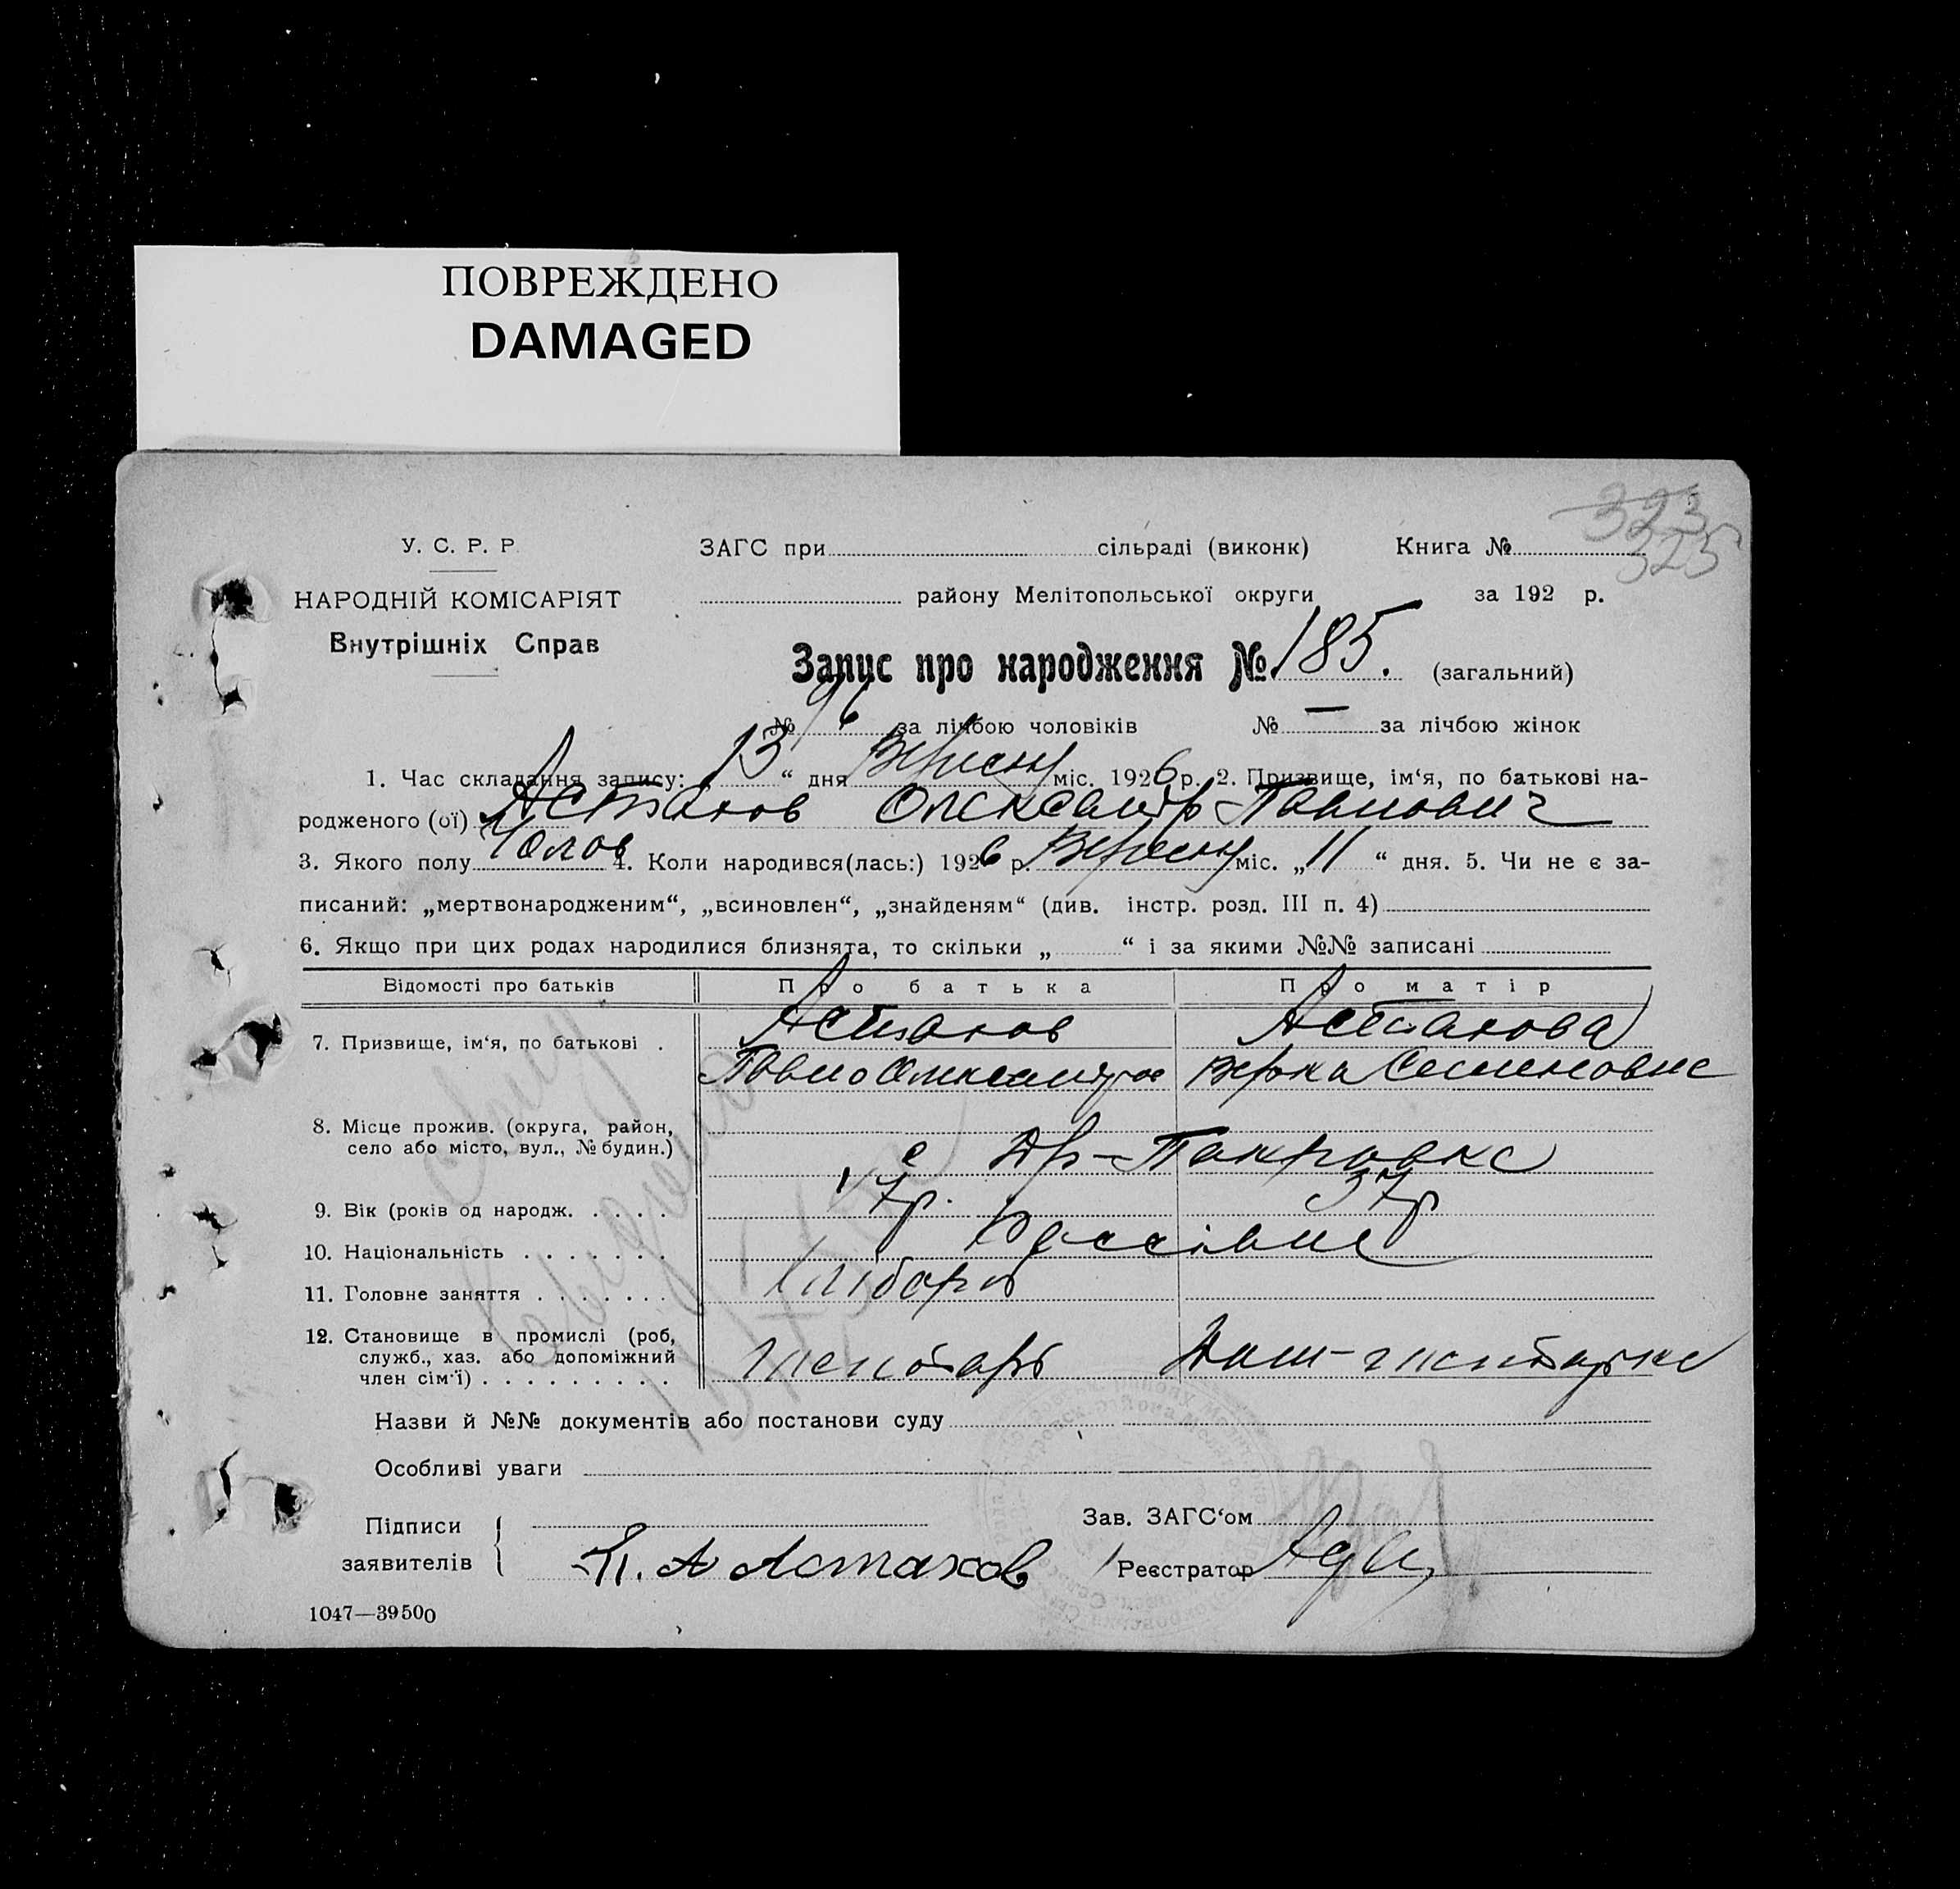 ПОВРЕЖДЕНО
DAMAGED
323
325
У. С. Р. Р.
НАРОДНІЙ КОМІСАРІЯТ
Внутрішніх Справ
ЗАГС при сільраді (виконк) Книга №
району Мелітопольської округи за 192 р.
Запис про народження № 185. (загальний)
№ 96 за лічбою чоловіків № — за лічбою жінок
1. Час складання запису: 13 “ дня Вересня міс. 1926 р. 2. Призвище, ім‘я, по батькові на-
родженого (ої) Астахов Олександр Павлович
3. Якого полу Чолов 4. Коли народився(лась:) 1926 р. Вересня міс. „ 11 “ дня. 5. Чи не є за-
писаний: „мертвонародженим“, „всиновлен“, „знайденям“ (див. інстр. розд. III п. 4)
6. Якщо при цих родах народилися близнята, то скільки „ “ і за якими №№ записані
Відомості про батьків Про батька Про матір
7. Призвище, ім‘я, по батькові . Астахов Астахова
Павло Семеновне
8. Місце прожив. (округа, район,
село або місто, вул., № будин.) с
9. Вік (років од народж. . . . . 37р
10. Національність . . . . . . .
11. Головне заняття . . . . . . . Хлібороб
12. Становище в промислі (роб,
служб., хаз. або допоміжний
член сім‘ї) . . . . . . . . .
Назви й №№ документів або постанови суду
Особливі уваги
Підписи
заявителів П. А Астахов
Зав. ЗАГС‘ом
Реєстратор
1047—39500